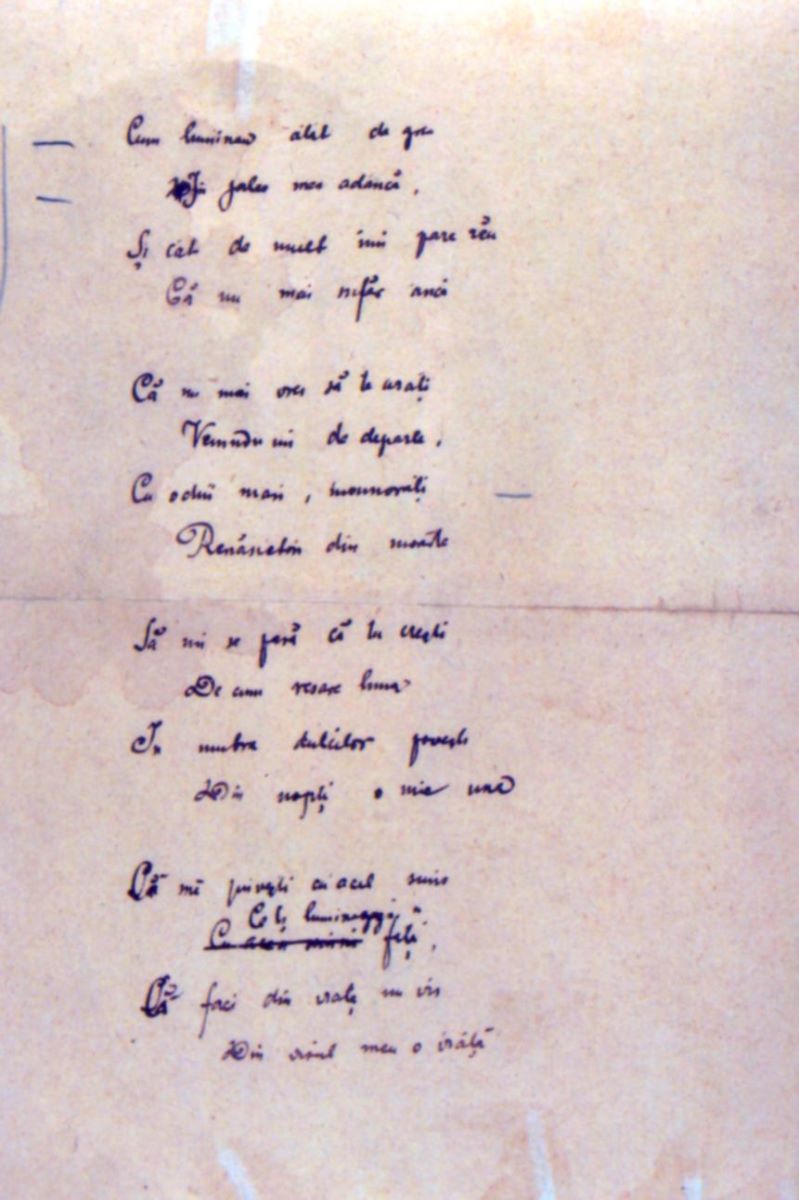 Cum luminau atât de greu
Din jalea mea adâncă,
Și cât de mult îmi pare rĕu
Că nu mai sufăr încă
Că nu mai vrei să te arați
Venindu mi de departe,
Cu ochii mari,
Renăscători din moarte
Să mi se pară că tu crești
De cum resare luna
In umbra dulcilor povești
Din nopți o mie una
Că mĕ privești cu acel suris
Ce ți luminează
feții,
Că faci din viață un vis
Din visul meu o viață